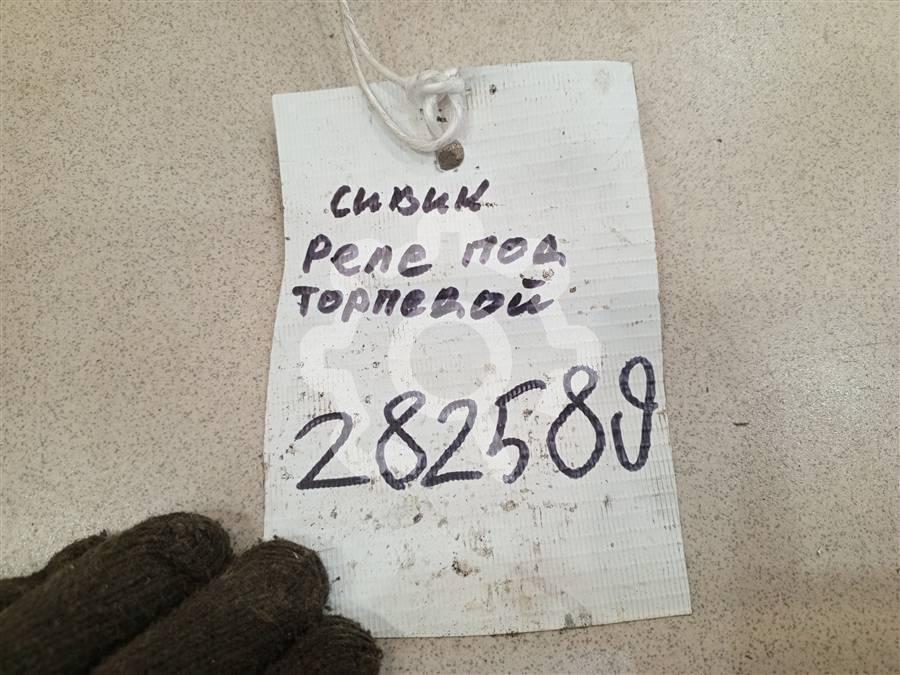 сивик
Реле под
торпедой
282589